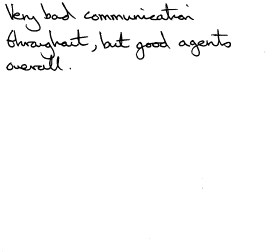 Very bad communication
throughout, but good agents
overall.